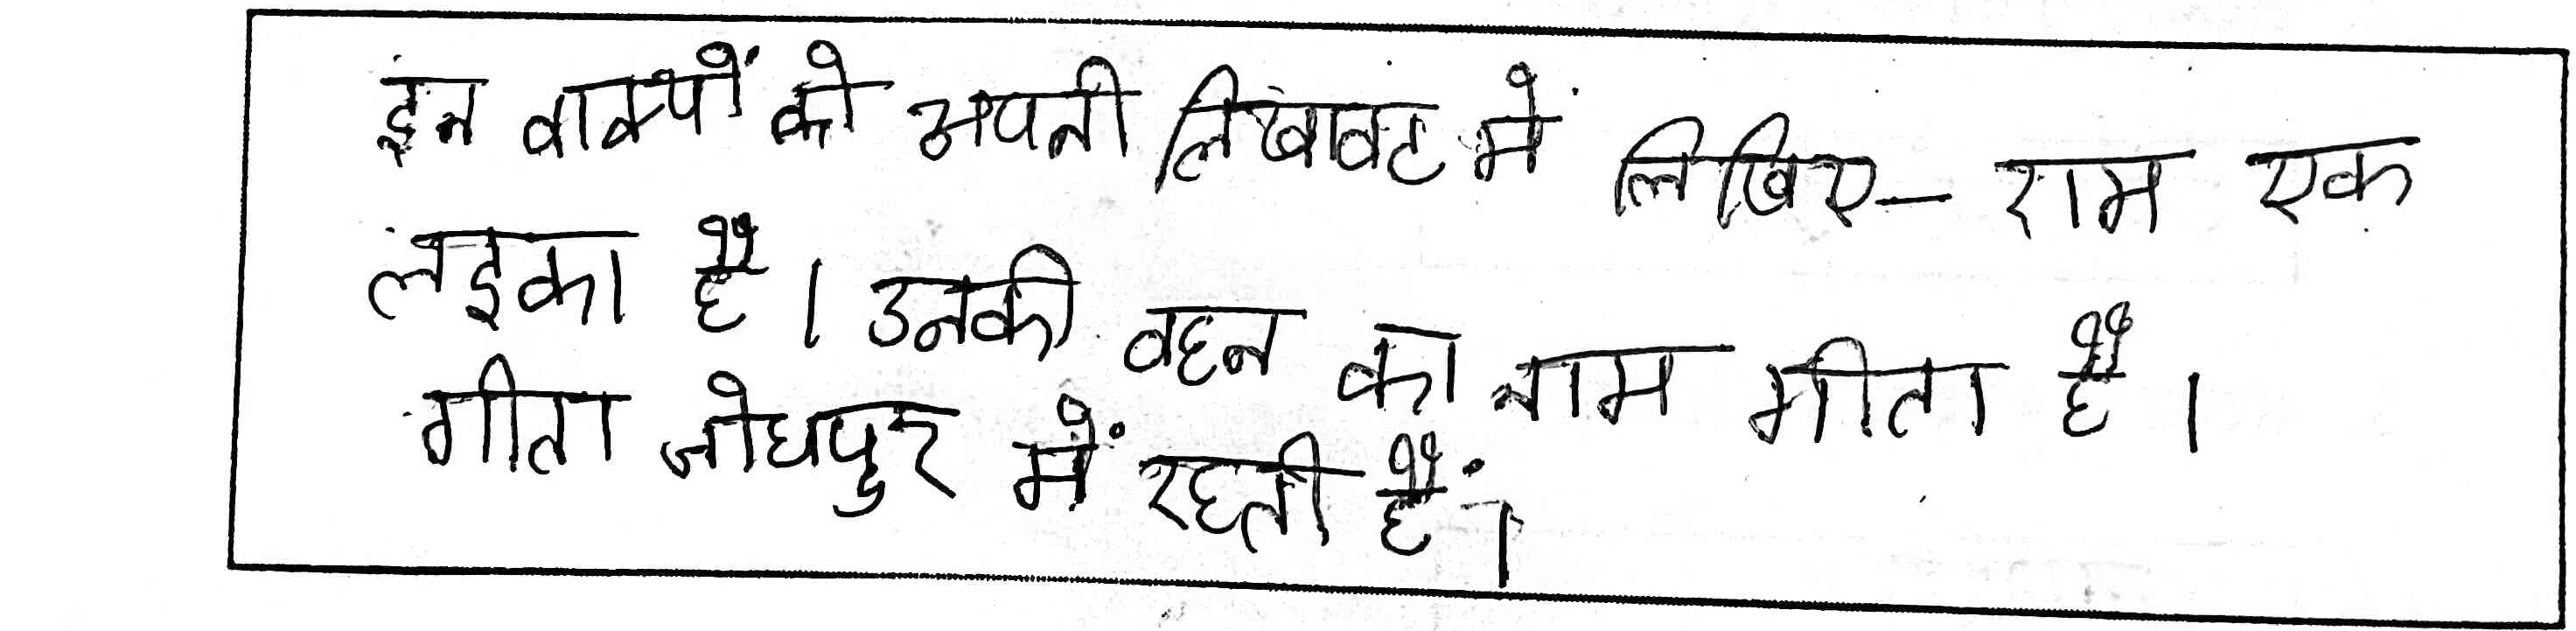 इन वाक्यों को अपनी लिखावट में लिखिए- राम एक
लड़का है। उनकी वहन का नाम गीता है।
गीता जोधपुर में रहती हैं।